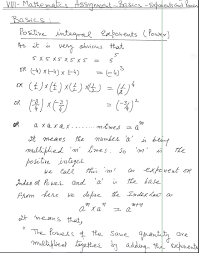 VIII - Mathematics Assignment - Basics - Exponents and Powers
Basics :-
Positive integral Exponents (Power)
As it is very obvious that
5 x 5 x 5 x 5 x 5 = 5⁵
or (-4) x (-4) x (-4) = (-4)³
or (½) x (½) x (½) x (½) = (½)⁴
or
or a x a x a x ........ m times = aᵐ
It means the number 'a' is being
multiplied 'm' times. So 'm' is the
positive integer
we call this 'm' as exponent or
Index or Power and 'a' is the base
From here we define the Index law as
aᵐ x aⁿ = aᵐ⁺ⁿ
It means that,
" The Powers of the same quantity are
multiplied together by adding the exponents